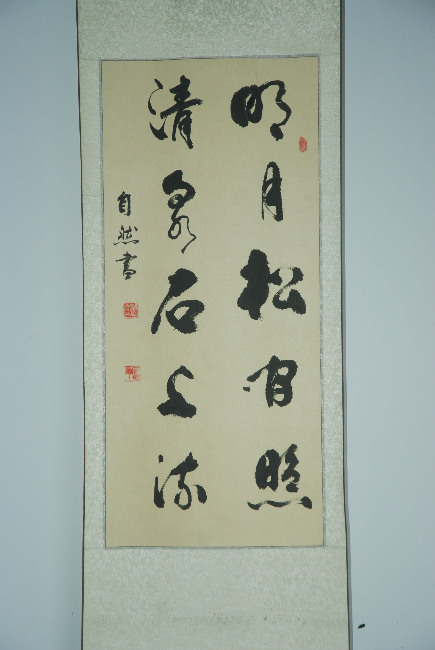 明月松间照
清泉石上流
自然書